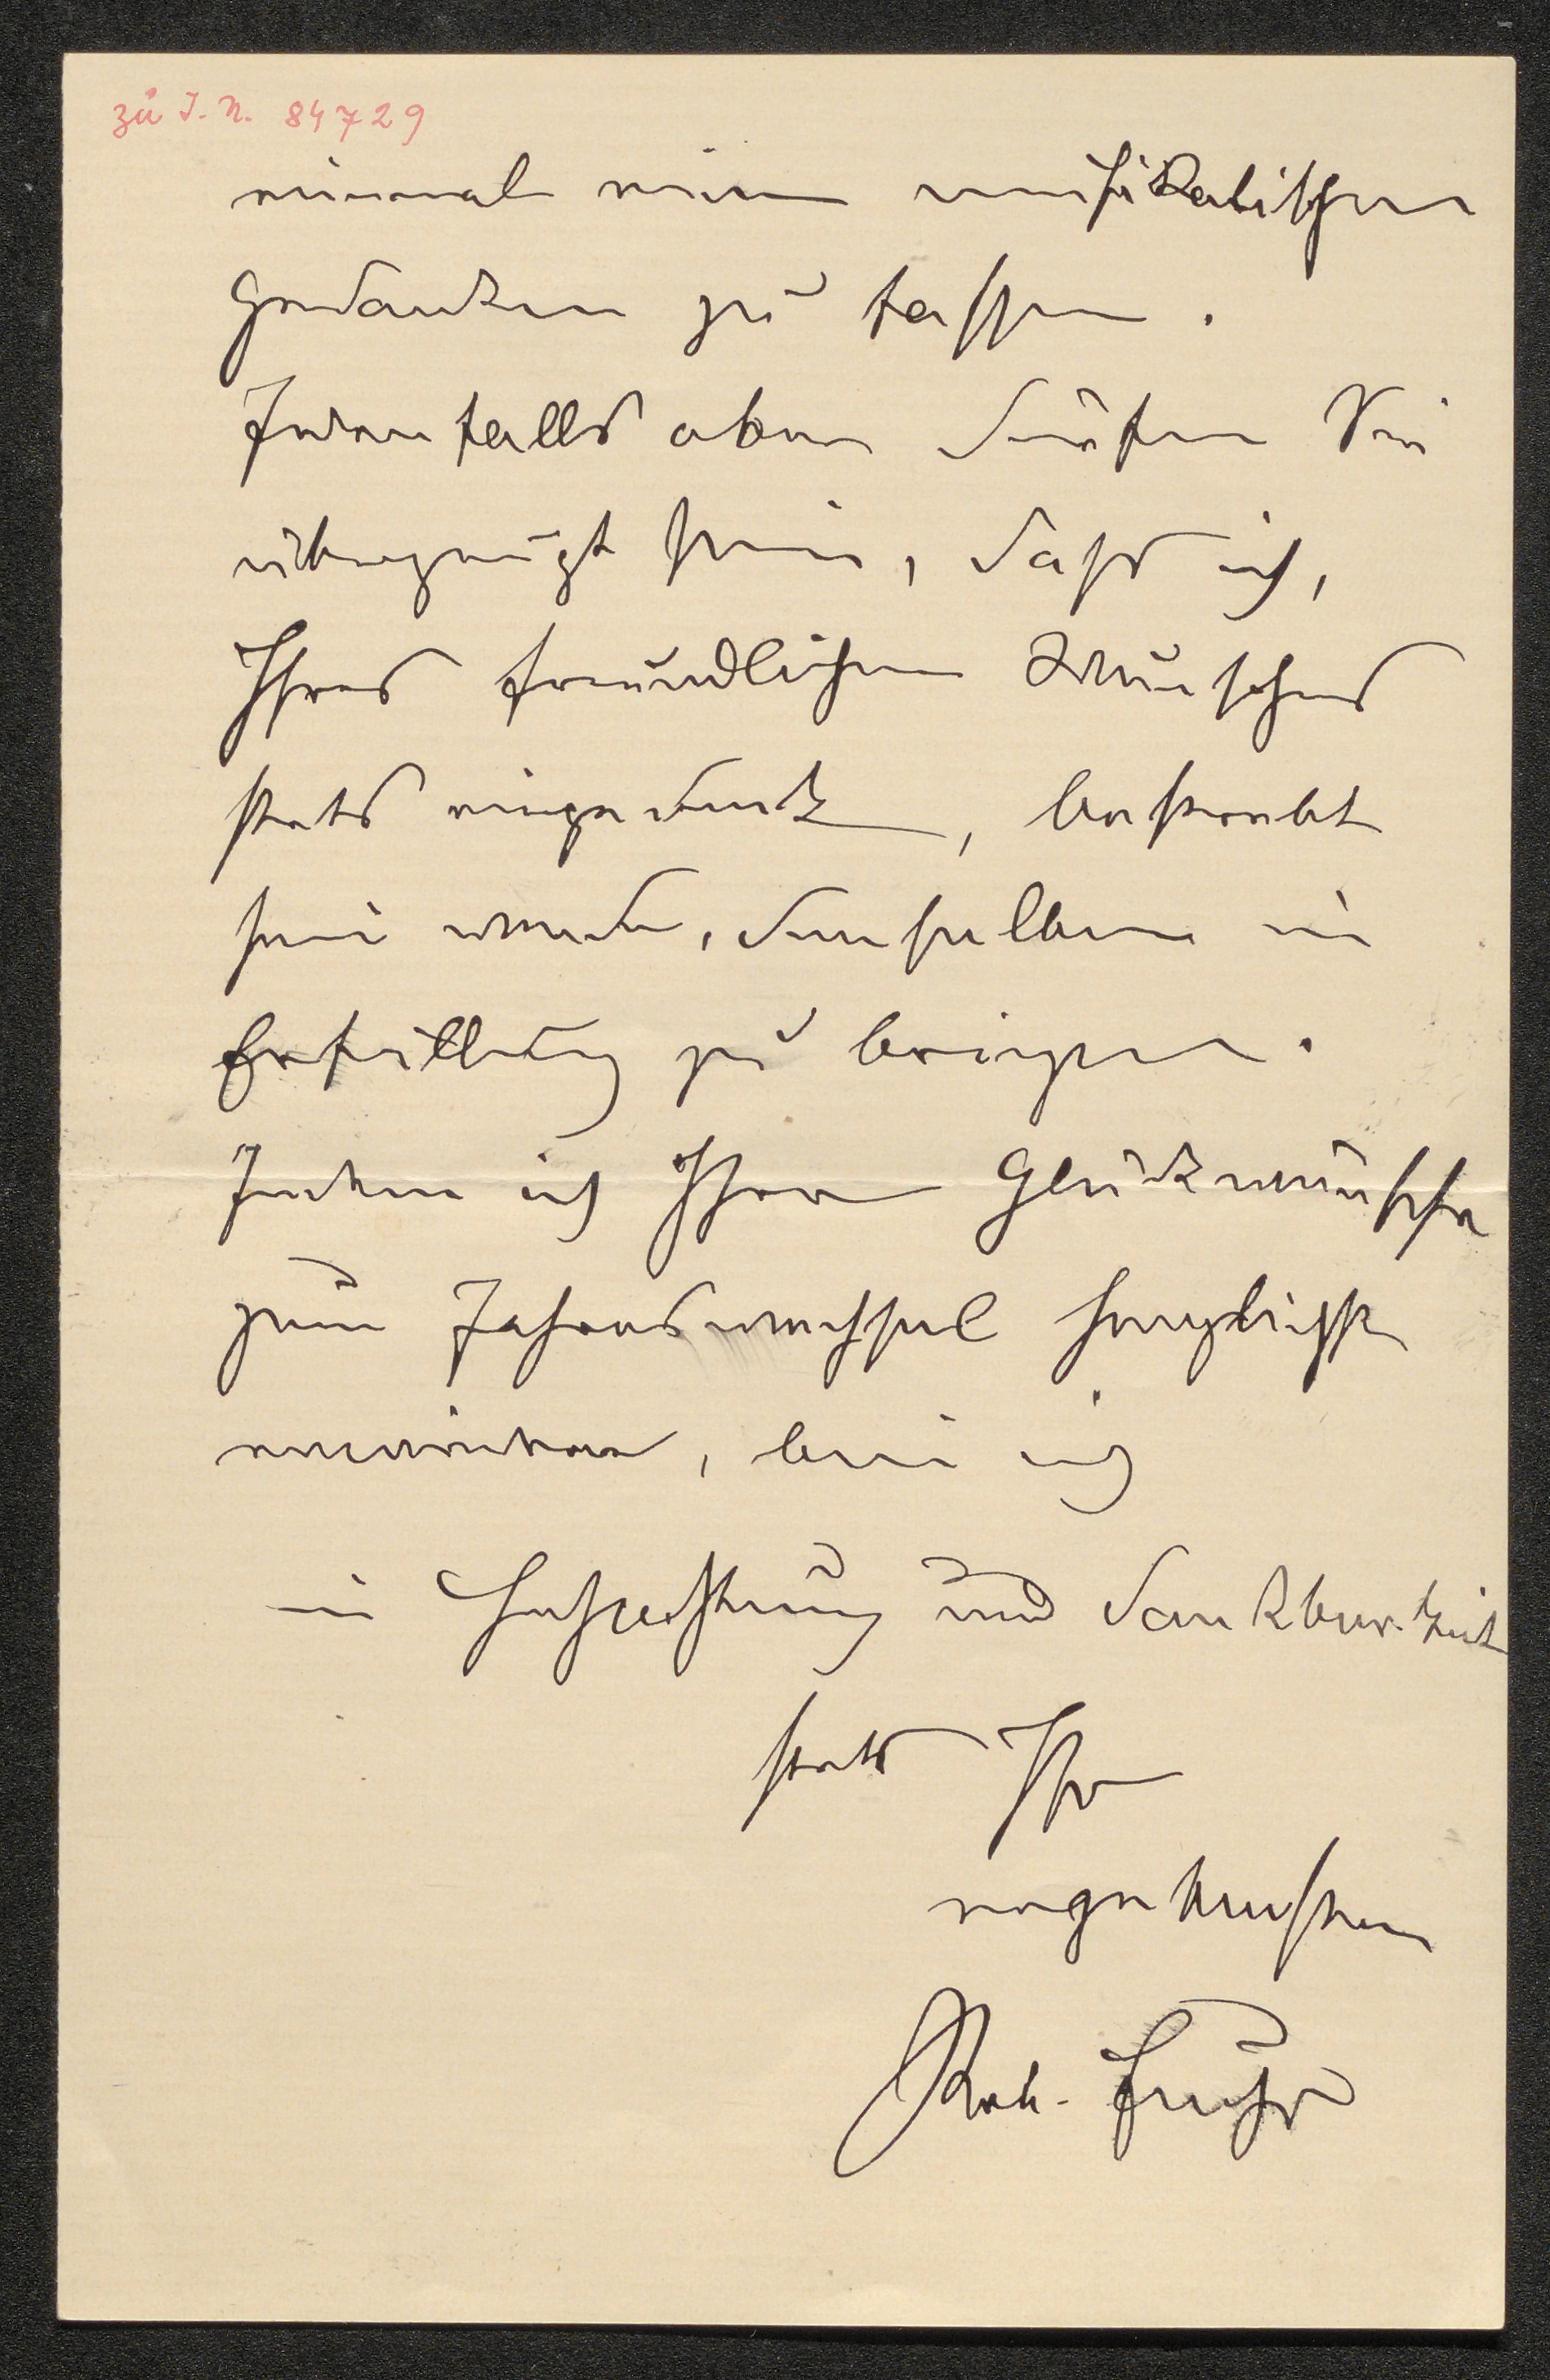 zu I. N. 84729
einmal einen musikalischen
Gedanken zu fassen.
Jedenfalls aber dürfen Sie
überzeugt sein, dass ich,
Ihres freundlichen Wunsches
stets eingedenk, bestrebt
sein werde, denselben in
Erfüllung zu bringen.
Indem ich Ihre Glückwünsche
zum Jahreswechsel herzlichst
erwidere, bin ich
in Hochachtung und Dankbarkeit
stets Ihr
ergebenster
Rob. Fuchs